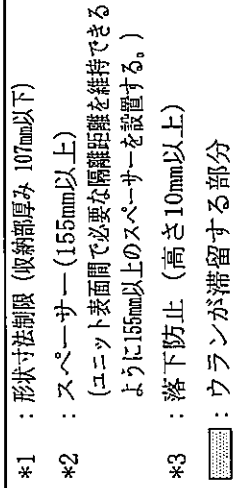 *1 : 形状寸法制限 (収納部厚み 107mm以下)
*2 : スペーサー (155mm以上)
(ユニット表面間で必要な隔離距離を維持できる
ように155mm以上のスペーサーを設置する。)
*3 : 落下防止 (高さ10mm以上)
: ウランが滞留する部分